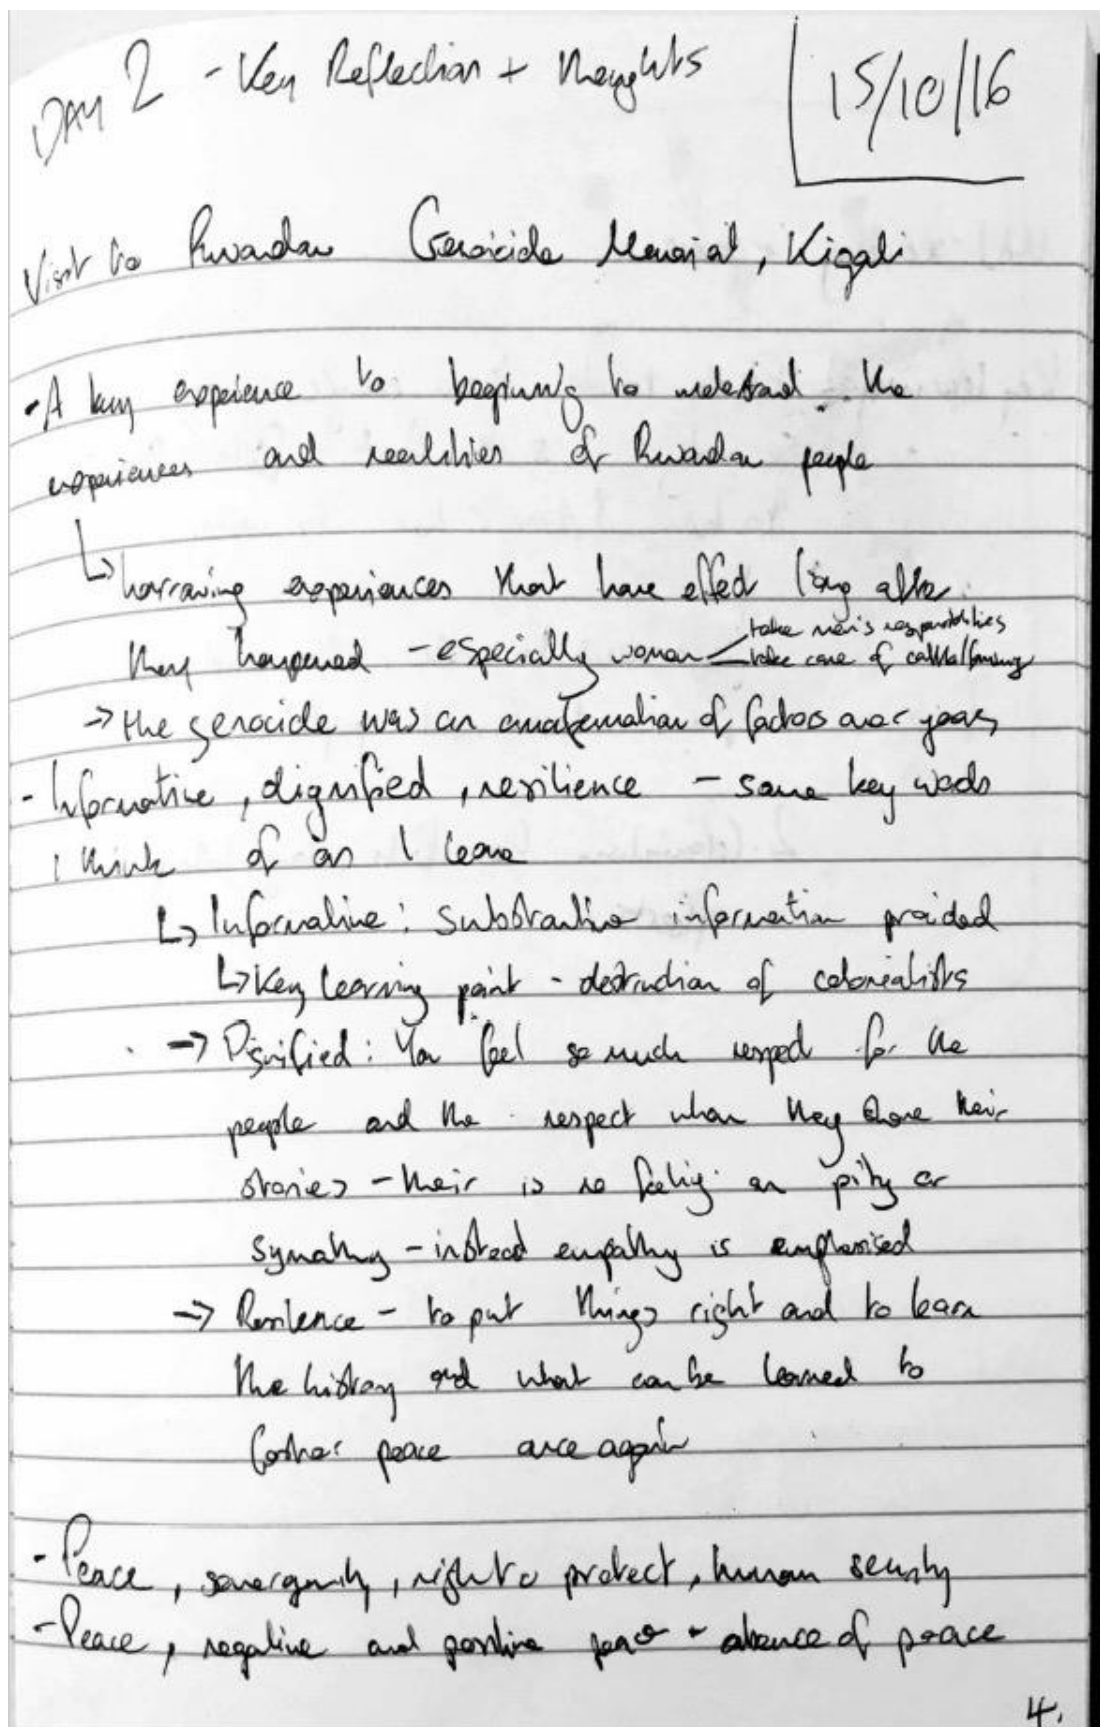 DAY 2 - Key Reflection + thoughts
15/10/16
Visit to Rwandan Genoicide Memorial, Kigali
- A key experience to beginning to understand the
experiences and realities of Rwandan people
↳ harrowing experiences that have effect long after
they happened - especially woman
take men's responsibilities
take care of cattle/farming
→ the genocide was an of factors over years
- Informative, dignified, resilience - some key words
I think of as I leave
↳ Informative: Substantive information provided
↳ Key learning point - destruction of colonialists
→ Dignified: You feel so much respect for the
people and the respect when they share their
stories - their is no feeling on pity or
symathy - instead empathy is emphasised
→ Resilence - to put things right and to learn
the history and what can be learned to
foster peace once again
- Peace, right to protect, human security
- Peace, negative and positive peace - absence of peace
4.